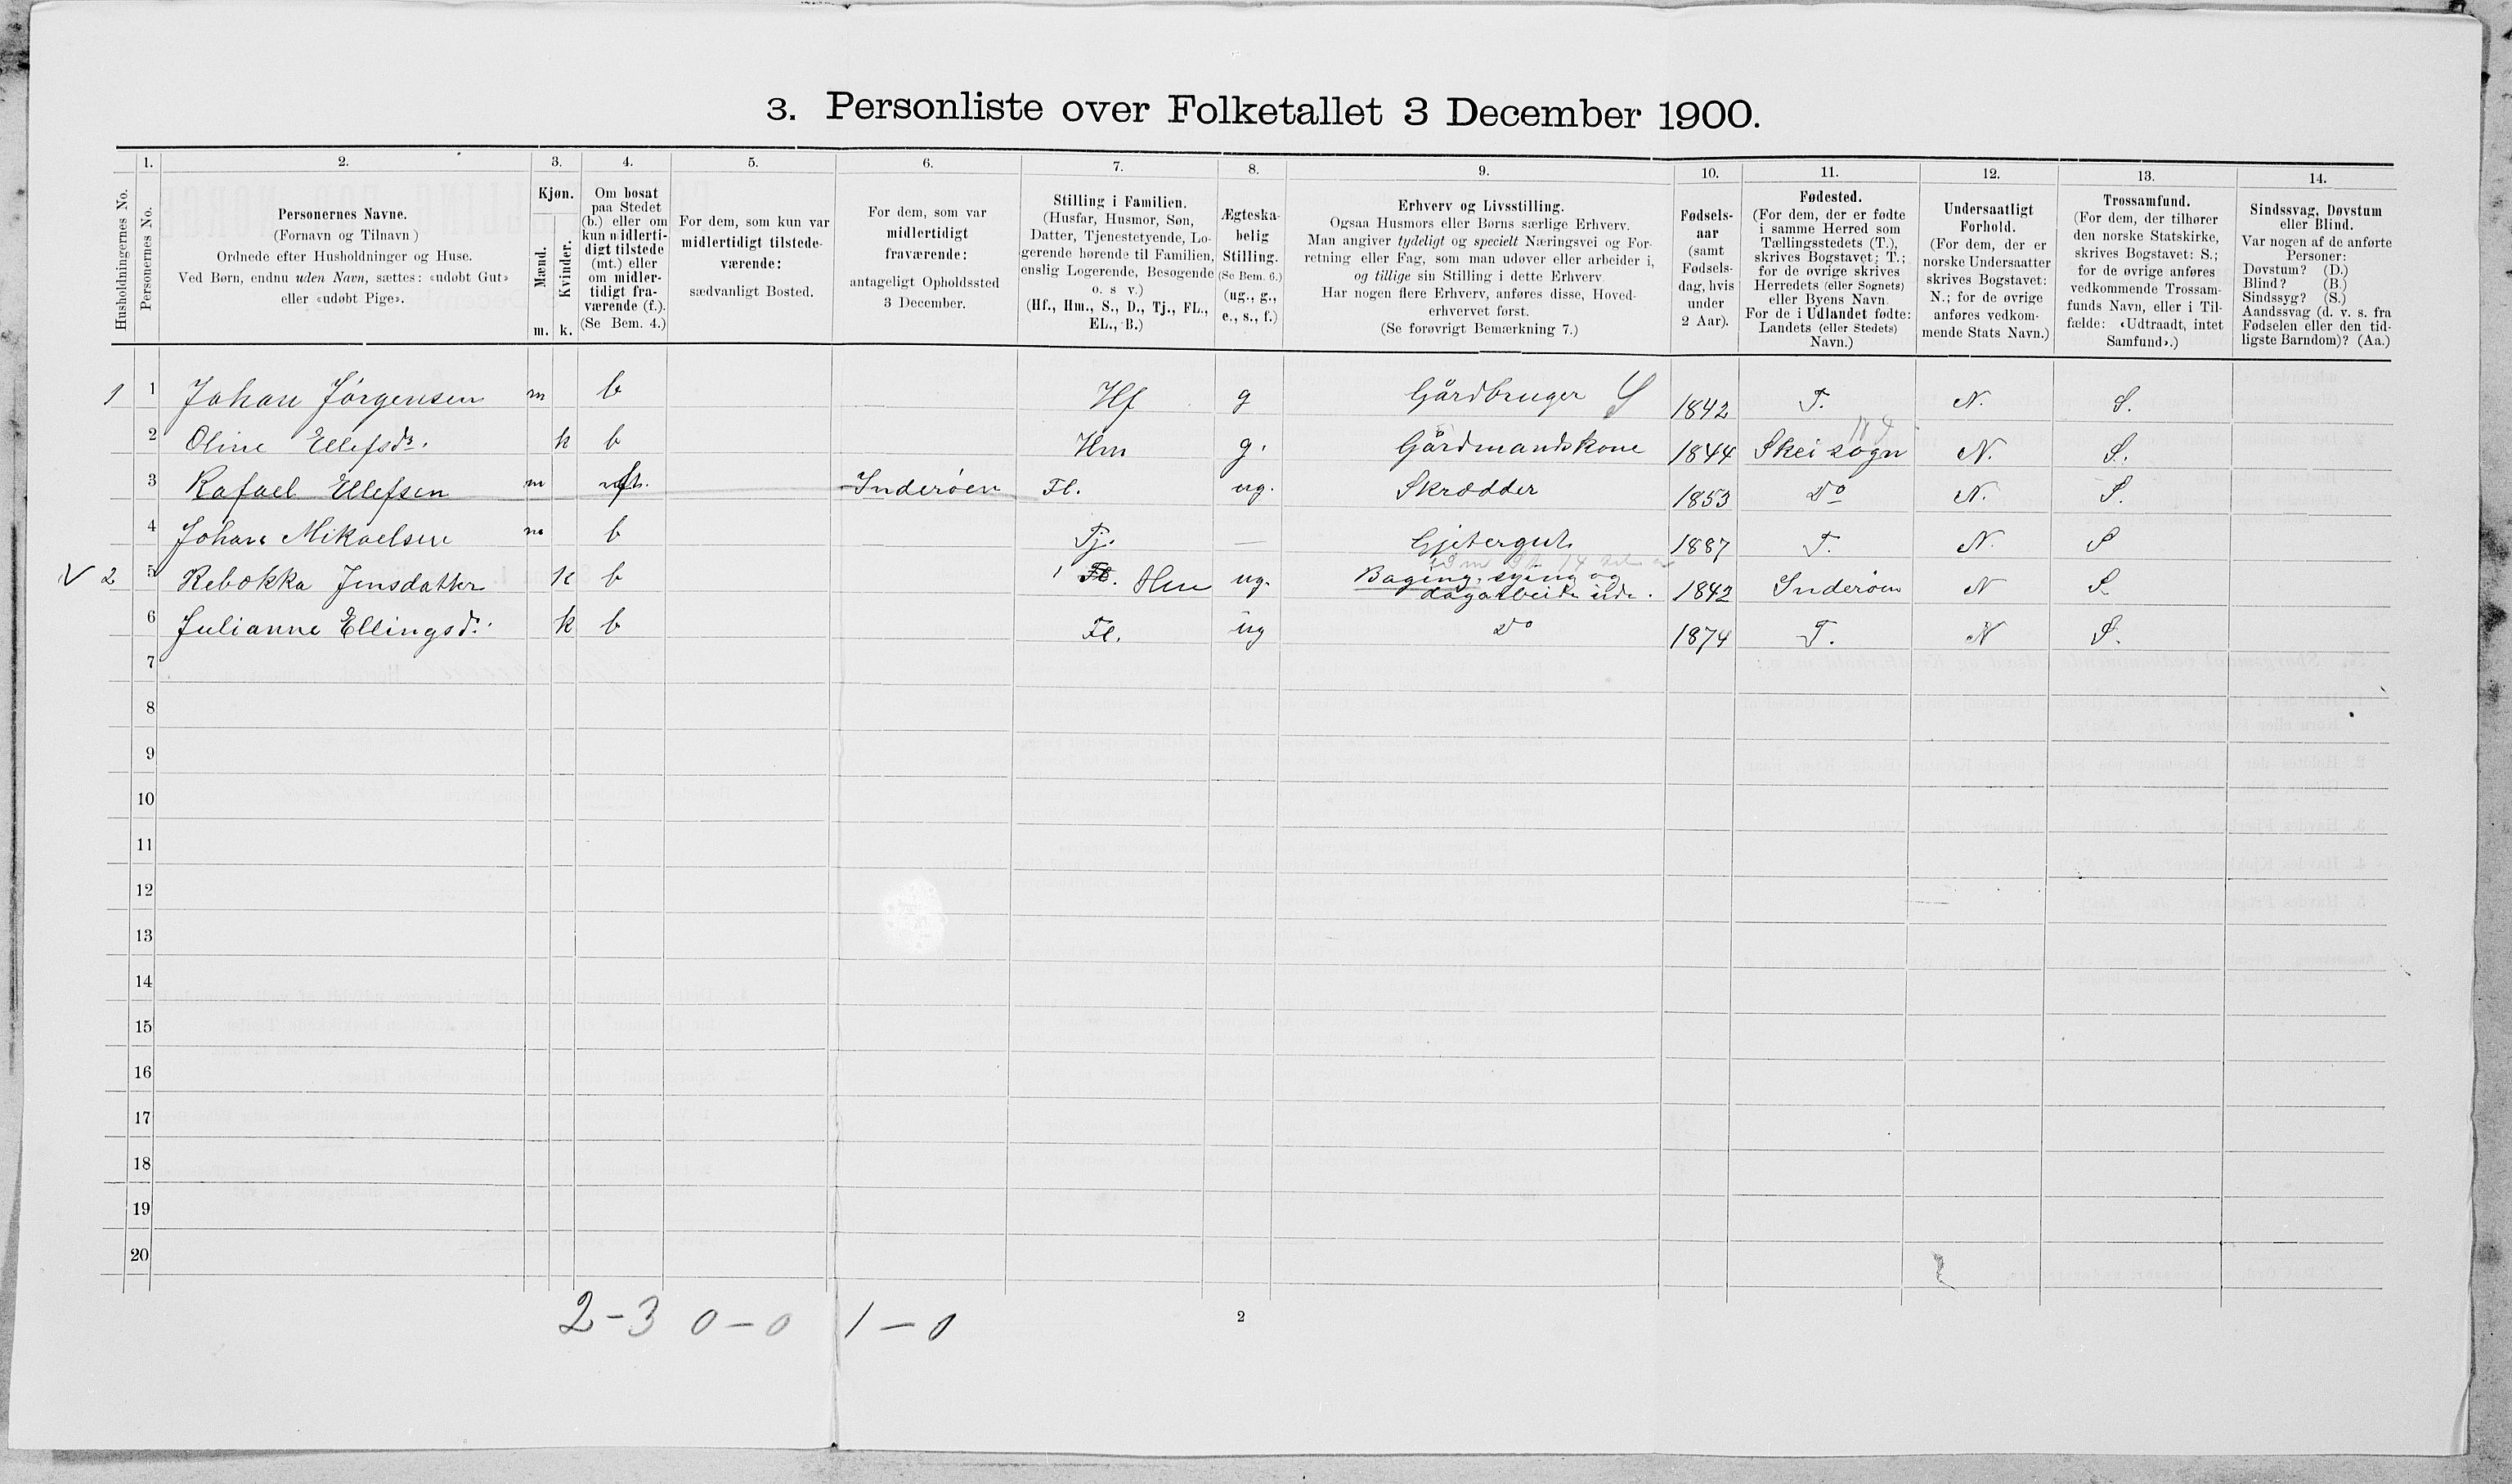 3. Personliste over Folketallet 3 December 1900.
1. 2. 3. 4. 5. 6. 7. 8. 9. 10. 11. 12. 13. 14.
Husholdningernes No.
Personernes No.
Personernes Navne.
(Fornavn og Tilnavn )
Ordnede efter Husholdninger og Huse.
Ved Børn, endnu uden Navn, sættes: «udøbt Gut»
eller «udøbt Pige».
Kjøn.
Mænd.
Kvinder.
m. k.
Om bosat
paa Stedet
(b.) eller om
kun midlerti-
digt tilstede
(mt.) eller
om midler-
tidigt fra-
værende (f.).
(Se Bem. 4.)
For dem, som kun var
midlertidigt tilstede-
værende:
sædvanligt Bosted.
For dem, som var
midlertidigt
fraværende:
antageligt Opholdssted
3 December.
Stilling i Familien.
(Husfar, Husmor, Søn,
Datter, Tjenestetyende, Lo-
gerende hørende til Familien,
enslig Logerende, Besøgende
o. s v.)
(Hf., Hm., S., D., Tj., FL.,
EL., B.)
Ægteska-
belig
Stilling.
(Se Bem. 6.)
(ug., g.,
e., s., f.)
Erhverv og Livsstilling.
Ogsaa Husmors eller Børns særlige Erhverv.
Man angiver tydeligt og specielt Næringsvei og For-
retning eller Fag, som man udøver eller arbeider i,
og tillige sin Stilling i dette Erhverv.
Har nogen flere Erhverv, anføres disse, Hoved-
erhvervet først.
(Se forøvrigt Bemærkning 7.)
Fødsels-
aar
(samt
Fødsels-
dag, hvis
under
2 Aar).
Fødested.
(For dem, der er fødte
i samme Herred som
Tællingsstedets (T.),
skrives Bogstavet: T.;
for de øvrige skrives
Herredets (eller Sognets)
eller Byens Navn.
For de i Udlandet fødte:
Landets (eller Stedets)
Navn.)
Undersaatligt
Forhold.
(For dem, der er
norske Undersaatter
skrives Bogstavet:
N.; for de øvrige
anføres vedkom-
mende Stats Navn.)
Trossamfund.
(For dem, der tilhører
den norske Statskirke,
skrives Bogstavet: S.;
for de øvrige anføres
vedkommende Trossam-
funds Navn, eller i Til-
fælde: «Udtraadt, intet
Samfund».)
Sindssvag, Døvstum
eller Blind.
Var nogen af de anførte
Personer:
Døvstum? (D.)
Blind? (B.)
Sindssyg? (S.)
Aandssvag (d. v. s. fra
Fødselen eller den tid-
ligste Barndom)? (Aa.)
1 1 Johan Jørgensen m b Hf g Gårdbruger S 1842 T. N. S.
2 Oline Ellefsdr. k b Hm g. Gårdmandskone 1844 Skei sogn N. S.
3 Rafael Ellefsen m f Inderøen Fl. ug. Skrædder 1853 Do N. S.
4 Johan Mikaelsen m b Tj. — Gjetergut 1887 T. N. S
V 2 5 Rebekka Jensdatter k b Fl. Hm ug. Baging, sying og
dagarbeide ude. 1842 Inderøen N S
6 Julianne Ellingsd. k b Fl. ug Do 1874 T. N S.
7
8
9
10
11
12
13
14
15
16
17
18
19
20
2 – 3 0 – 0 1 – 0
2